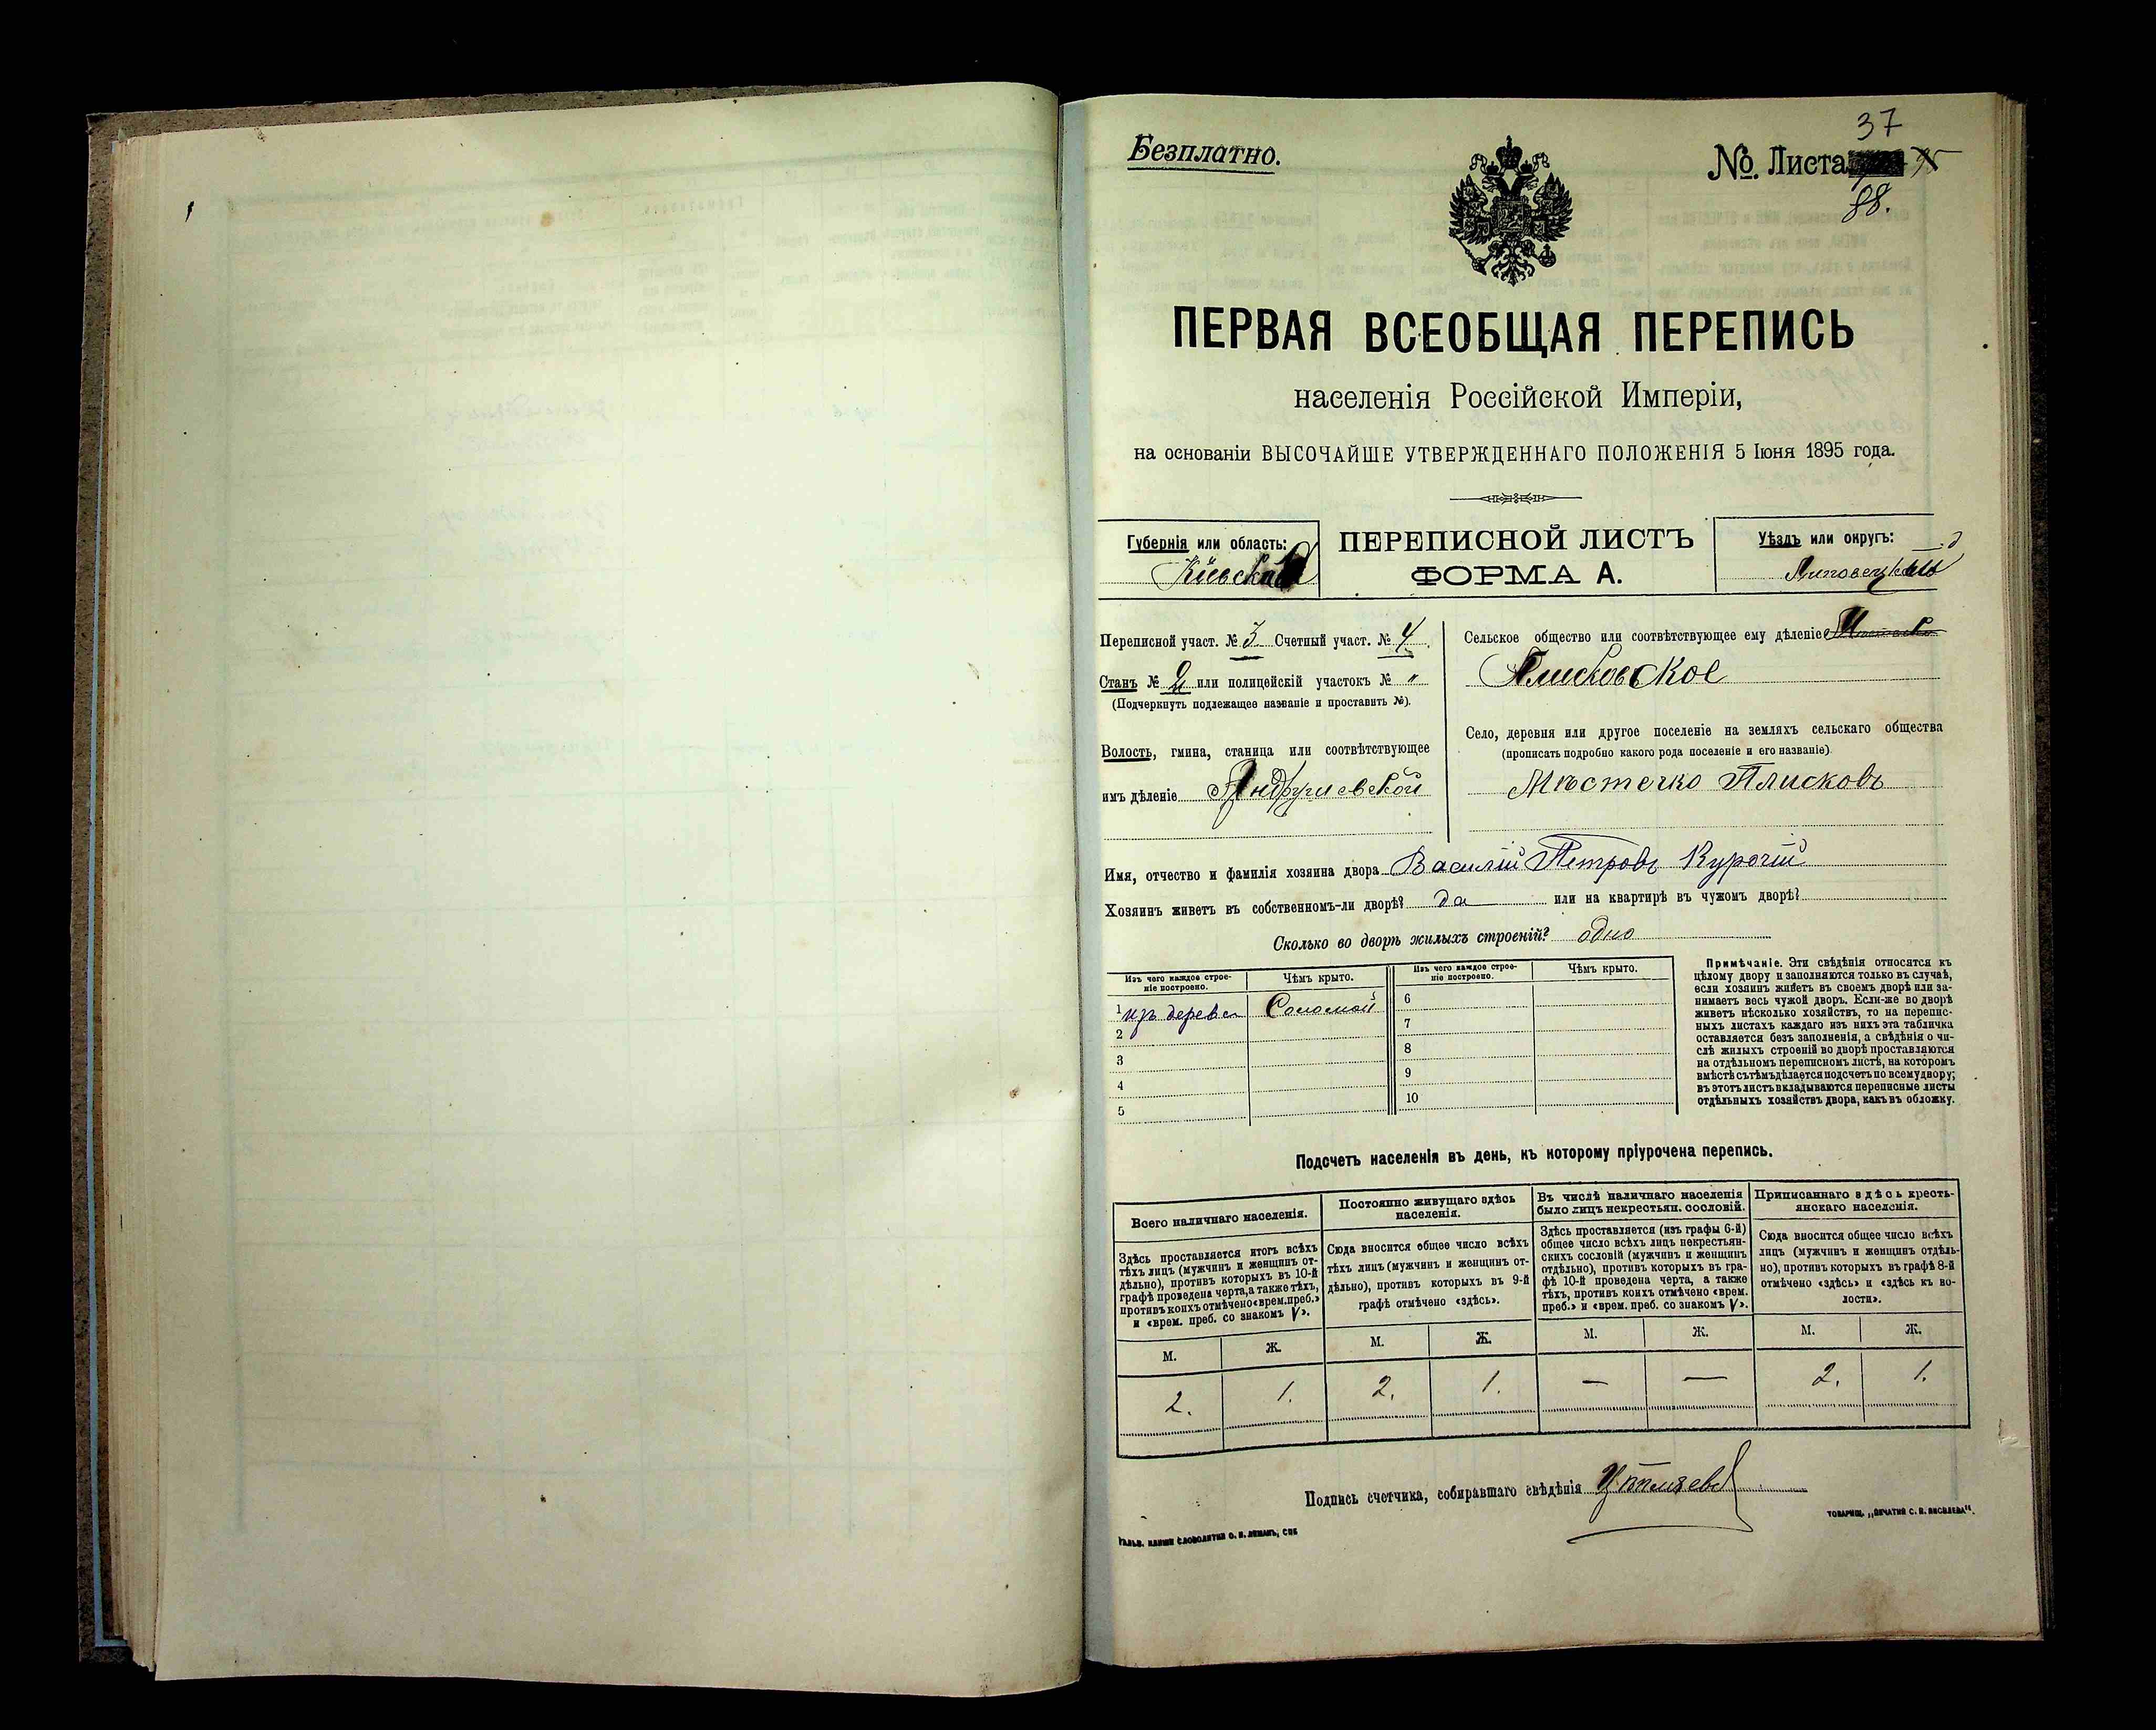 37
Безплатно.
№. Листа
88.
ПЕРВАЯ ВСЕОБЩАЯ ПЕРЕПИСЬ
населенія Россійской Имперіи,
на основаніи ВЫСОЧАЙШЕ УТВЕРЖДЕННАГО ПОЛОЖЕНІЯ 5 Іюня 1895 года.
Губернія или область:
Кіевская
ПЕРЕПИСНОЙ ЛИСТЪ
ФОРМА А.
Уѣздъ или округъ:
Липовецкій
Переписной участ. № 3 Счетный участ. № 4
Станъ № 2 или полицейскій участокъ № "
(Подчеркнуть подлежащее названіе и проставить №).
Волость, гмина, станица или соотвѣтствующее
имъ дѣленіе Андрушевской
Сельское общество или соотвѣтствующее ему дѣленіе
Плисковское
Село, деревня или другое поселеніе на земляхъ сельскаго общества
(прописать подробно какого рода поселеніе и его названіе)
Мѣстечко Плисковъ
Имя, отчество и фамилія хозяина двора Василій Петровъ Курочій
Хозяинъ живетъ въ собственномъ-ли дворѣ? да или на квартирѣ въ чужомъ дворѣ?
Сколько во дворѣ жилыхъ строеній? одно
Изъ чего каждое строе-
ніе построено.
Чѣмъ крыто.
1 изъ дерева Соломой
2
3
4
5
Изъ чего каждое строе-
ніе построено.
Чѣмъ крыто.
6
7
8
9
10
Примѣчаніе. Эти свѣдѣнія относятся къ
цѣлому двору и заполняются только въ случаѣ,
если хозяинъ живетъ въ своемъ дворѣ или за-
нимаетъ весь чужой дворъ. Если-же во дворѣ
живетъ нѣсколько хозяйствъ, то на перепис-
ныхъ листахъ каждаго изъ нихъ эта табличка
оставляется безъ заполненія, а свѣдѣнія о чи-
слѣ жилыхъ строеній во дворѣ проставляются
на отдѣльномъ переписномъ листѣ, на которомъ
вмѣстѣ съ тѣмъ дѣлается подсчетъ по всему двору;
въ этотъ листъ вкладываются переписные листы
отдѣльныхъ хозяйствъ двора, какъ въ обложку.
Подсчетъ населенія въ день, къ которому пріурочена перепись.
Всего наличнаго населенія.
Здѣсь проставляется итогъ всѣхъ
тѣхъ лицъ (мужчинъ и женщинъ от-
дѣльно), противъ которыхъ въ 10-й
графѣ проведена черта, а также тѣхъ,
противъ коихъ отмѣчено «врем. преб.»
и «врем. преб. со знакомъ V».
М. Ж.
2. 1.
Постоянно живущаго здѣсь
населенія.
Сюда вносится общее число всѣхъ
тѣхъ лицъ (мужчинъ и женщинъ от-
дѣльно), противъ которыхъ въ 9-й
графѣ отмѣчено «здѣсь».
М. Ж.
2. 1.
Въ числѣ наличнаго населенія
было лицъ некрестьян. сословій.
Здѣсь проставляется (изъ графы 6-й)
общее число всѣхъ лицъ некрестьян-
скихъ сословій (мужчинъ и женщинъ
отдѣльно), противъ которыхъ въ гра-
фѣ 10-й проведена черта, а также
тѣхъ, противъ коихъ отмѣчено «врем.
преб.» и «врем. преб. со знакомъ V».
М. Ж.
— —
Приписаннаго здѣсь кресть-
янскаго населенія.
Сюда вносится общее число всѣхъ
лицъ (мужчинъ и женщинъ отдѣль-
но), противъ которыхъ въ графѣ 8-й
отмѣчено «здѣсь» и «здѣсь къ во-
лости».
М. Ж.
2. 1.
Подпись счетчика, собиравшаго свѣдѣнія
ГАЛЬВ. КЛИШИ СЛОВОЛИТНИ О. И. ЛЕМАНЪ, СПБ
ТОВАРИЩ. „ПЕЧАТНЯ С. П. ЯКОВЛЕВА".